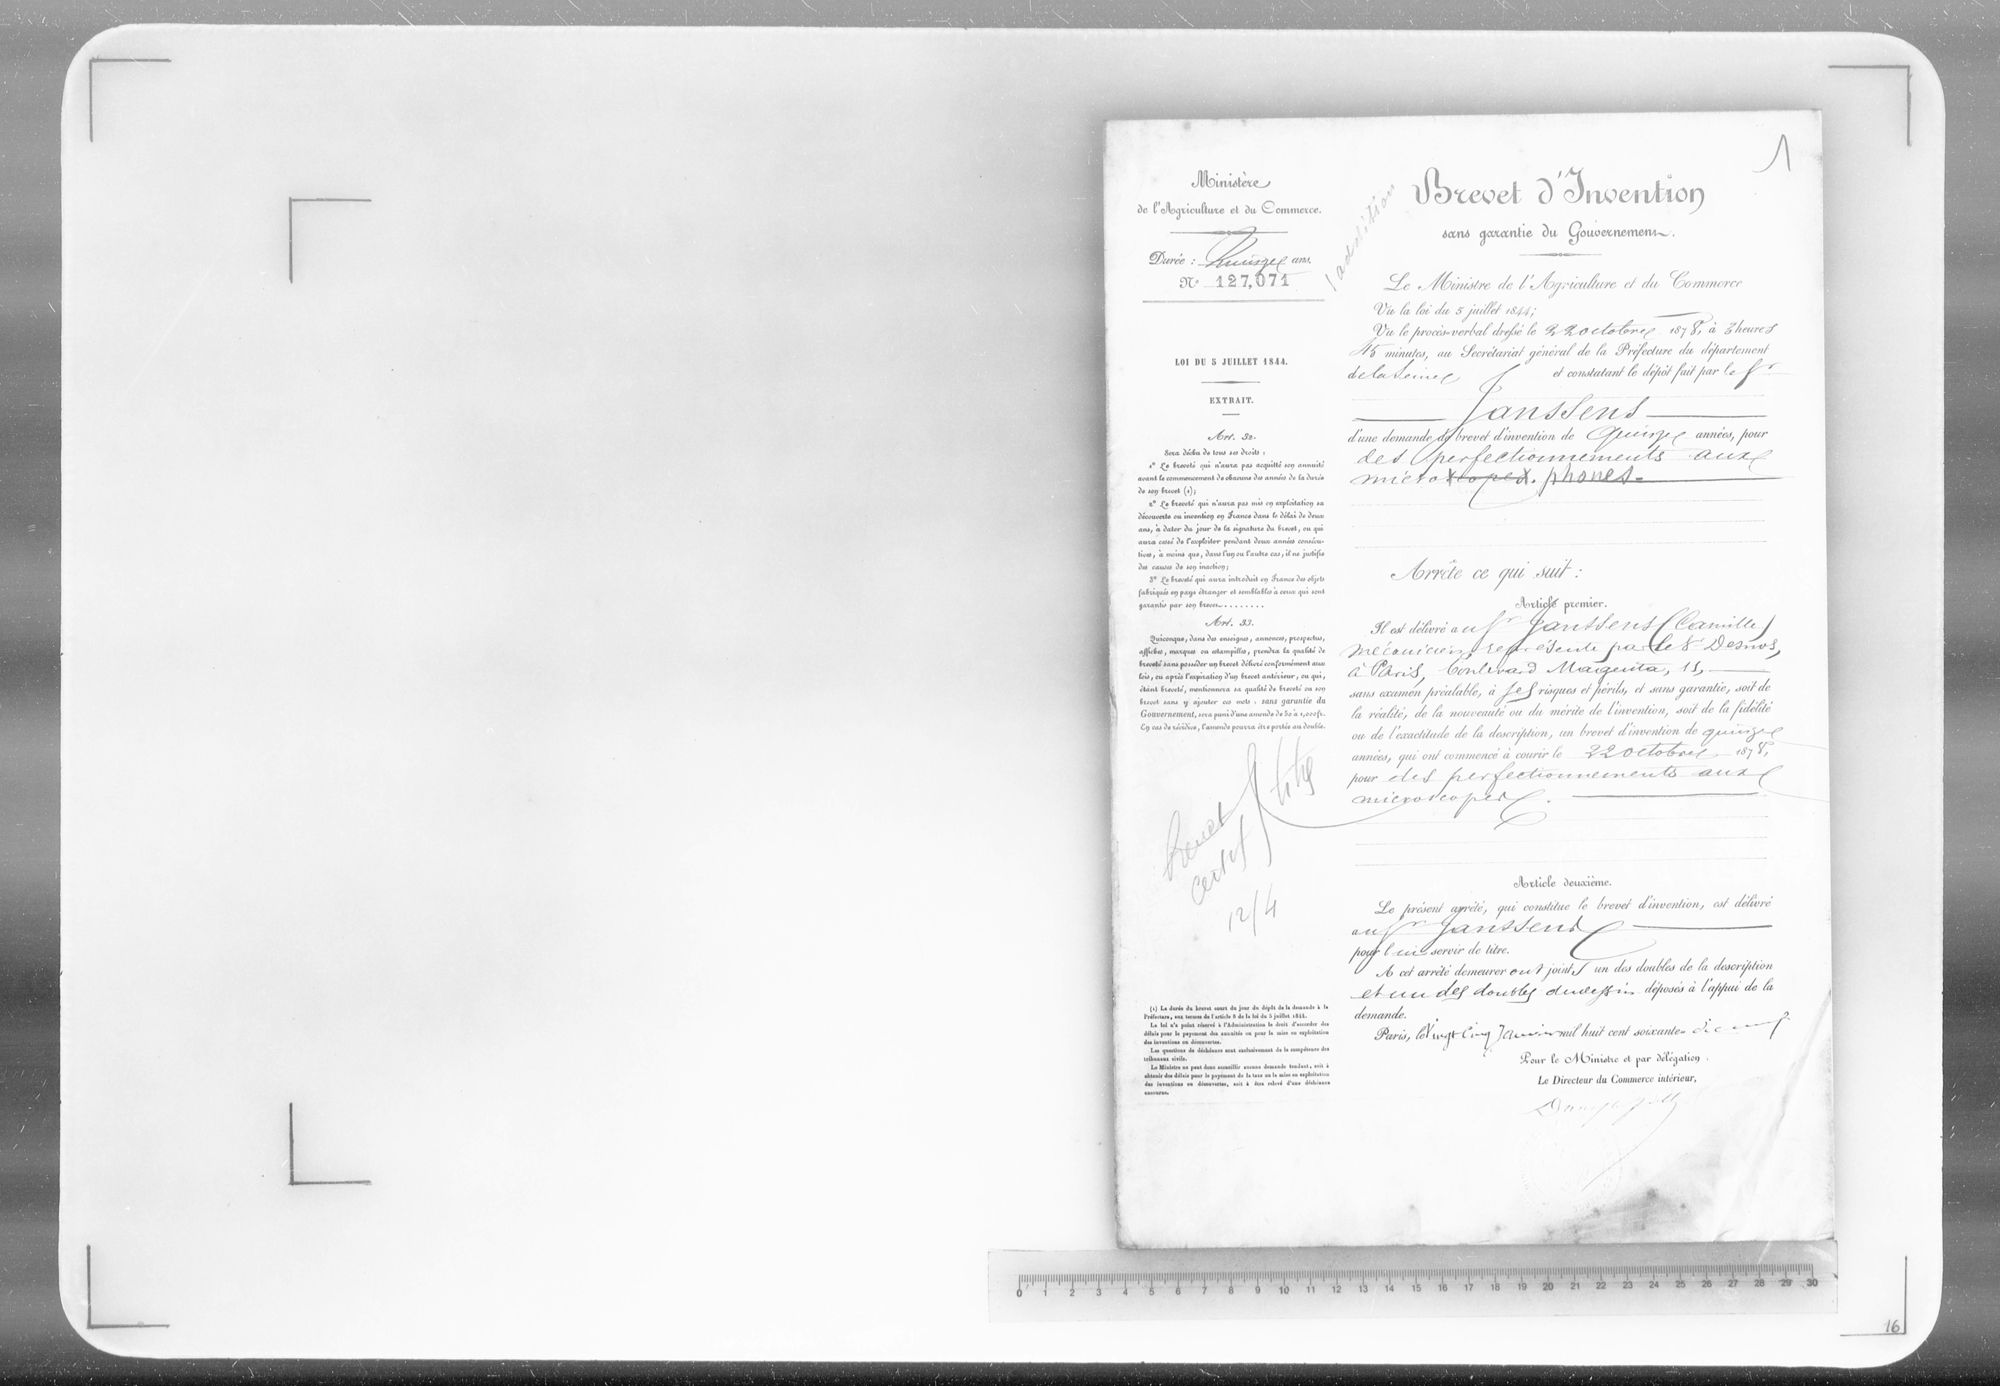 1
Ministère
de l'Agriculture et du Commerce.
Durée : Quinze ans.
N° 127,071
LOI DU 5 JUILLET 1844.
EXTRAIT.
Art. 32.
Sera déchu de tous ses droits :
1° Le breveté qui n'aura pas acquitté son annuité
avant le commencement de chacune des années de la durée
de son brevet (1);
2° Le breveté qui n'aura pas mis en exploitation sa
découverte ou invention en France dans le délai de deux
ans, à dater du jour de la signature du brevet, ou qui
aura cessé de l'exploiter pendant deux années consécu-
tives, à moins que, dans l'un ou l'autre cas, il ne justifie
des causes de son inaction;
3° Le breveté qui aura introduit en France des objets
fabriqués en pays étranger et semblables à ceux qui sont
garantis par son brevet........
Art. 33.
Quiconque, dans des enseignes, annonces, prospectus,
affiches, marques ou estampilles, prendra la qualité de
breveté sans posséder un brevet délivré conformément aux
lois, ou après l'expiration d'un brevet antérieur, ou qui,
étant breveté, mentionnera sa qualité de breveté ou son
brevet sans y ajouter ces mots : sans garantie du
Gouvernement, sera puni d'une amende de 50 à 1,000 fr.
En cas de récidive, l'amende pourra être portée au double.
titre
brevet
certif
12/4
(1) La durée du brevet court du jour du dépôt de la demande à la
Préfecture, aux termes de l'article 8 de la loi du 5 juillet 1844.
La loi n'a point réservé à l'Administration le droit d'accorder des
délais pour le payement des annuités ou pour la mise en exploitation
des inventions ou découvertes.
Les questions de déchéance sont exclusivement de la compétence des
tribunaux civils.
Le Ministre ne peut donc accueillir aucune demande tendant, soit à
obtenir des délais pour le payement de la taxe ou la mise en exploitation
des inventions ou découvertes, soit à être relevé d'une déchéance
encourue.
1 addition
Brevet d'Invention
sans garantie du Gouvernement.
Le Ministre de l'Agriculture et du Commerce
Vu la loi du 5 juillet 1844;
Vu le procès-verbal dressé le 22 octobre 1878, à 3 heures
45 minutes, au Secrétariat général de la Préfecture du département
de la Seine et constatant le dépôt fait par le Sr
Janssens
d'une demande de brevet d'invention de quinze années, pour
des perfectionnements aux
microscopes. phones.
Arrête ce qui suit :
Article premier.
Il est délivré au Sr Janssens (Camille)
mécanicien, représenté par le Sr Desnos,
à Paris, boulevard Magenta, 11,
sans examen préalable, à ses risques et périls, et sans garantie, soit de
la réalité, de la nouveauté ou du mérite de l'invention, soit de la fidélité
ou de l'exactitude de la description, un brevet d'invention de quinze
années, qui ont commencé à courir le 22 octobre 1878,
pour des perfectionnements aux
microscopes.
Article deuxième.
Le présent arrêté, qui constitue le brevet d'invention, est délivré
au Sr Janssens
pour lui servir de titre.
A cet arrêté demeureront joints un des doubles de la description
et un des doubles du dessin déposés à l'appui de la
demande.
Paris, le vingt cinq Janvier mil huit cent soixante-dix neuf.
Pour le Ministre et par délégation.
Le Directeur du Commerce intérieur,
0 1 2 3 4 5 6 7 8 9 10 11 12 13 14 15 16 17 18 19 20 21 22 23 24 25 26 27 28 29 30
16